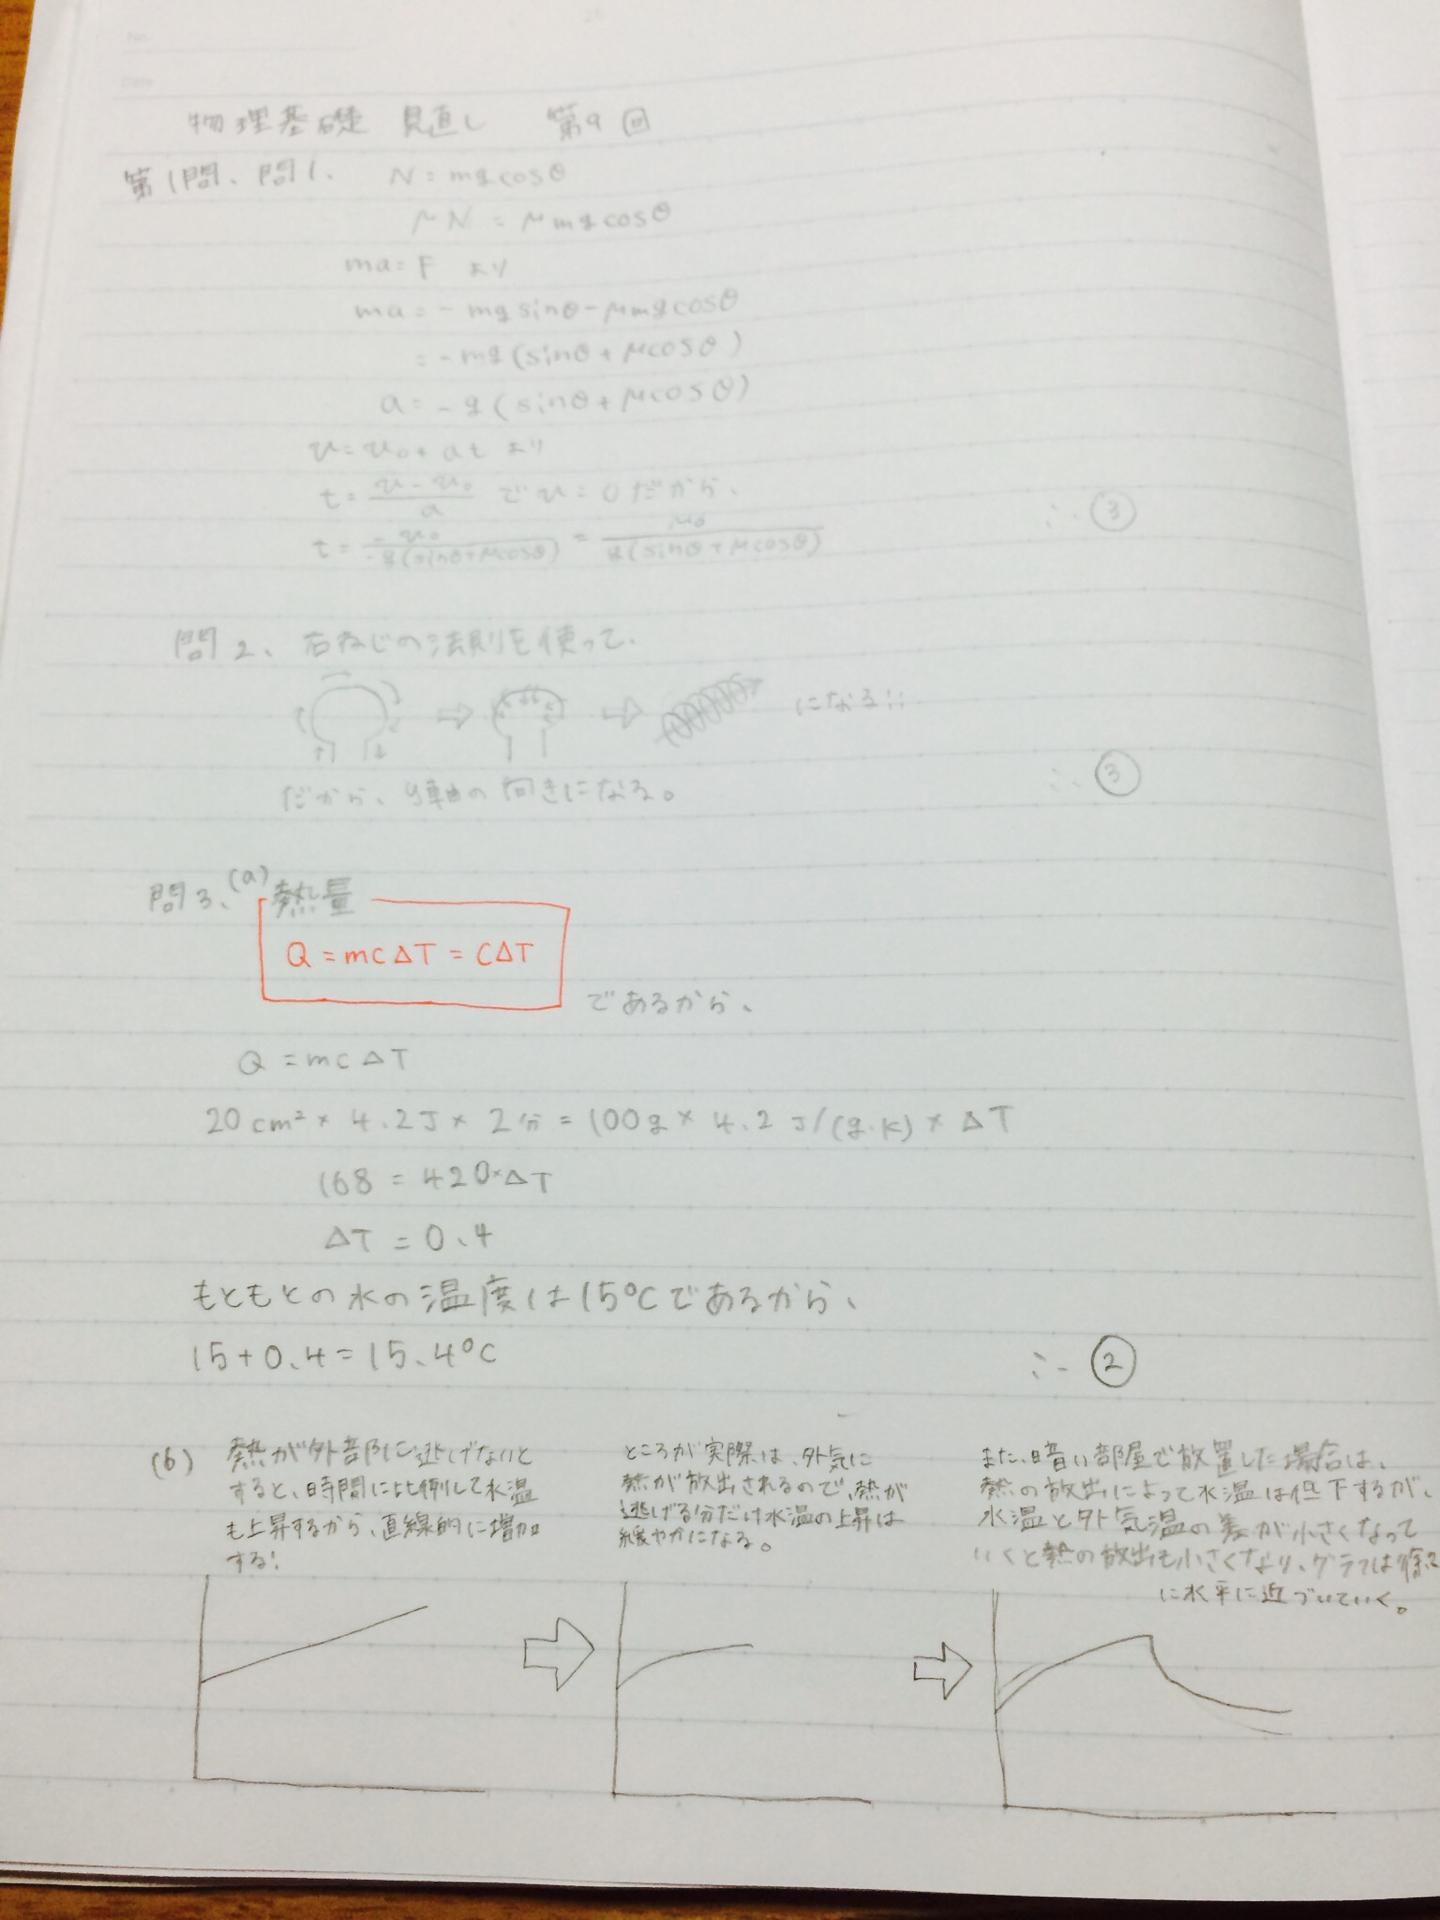 No.
Date
物理基礎 見直し 第9回
第1問、問1、 N=mgcosθ
μN = μmgcosθ
ma=F より
ma=-mgsinθ-μmgcosθ
=-mg(sinθ+μcosθ)
a=-g(sinθ+μcosθ)
v=v₀+at より
t=(v-v₀)/a で v=0だから、
t=-v₀/-g(sinθ+μcosθ) = v₀/g(sinθ+μcosθ) ∴③
問2、右ねじの法則を使って、
になる!!
だから、y軸の向きになる。 ∴③
問3、(a) 熱量
Q=mcΔT=CΔT
であるから、
Q=mcΔT
20cm²×4.2J×2分=100g×4.2J/(g・K)×ΔT
168=420×ΔT
ΔT=0.4
もともとの水の温度は15℃であるから、
15+0.4=15.4℃ ∴②
(b) 熱が外部に逃げないと
すると、時間に比例して水温
も上昇するから、直線的に増加
する!
ところが実際は、外気に
熱が放出されるので、熱が
逃げる分だけ水温の上昇は
緩やかになる。
また、暗い部屋で放置した場合は、
熱の放出によって水温は低下するが、
水温と外気温の差が小さくなって
いくと熱の放出も小さくなり、グラフは徐々
に水平に近づいていく。